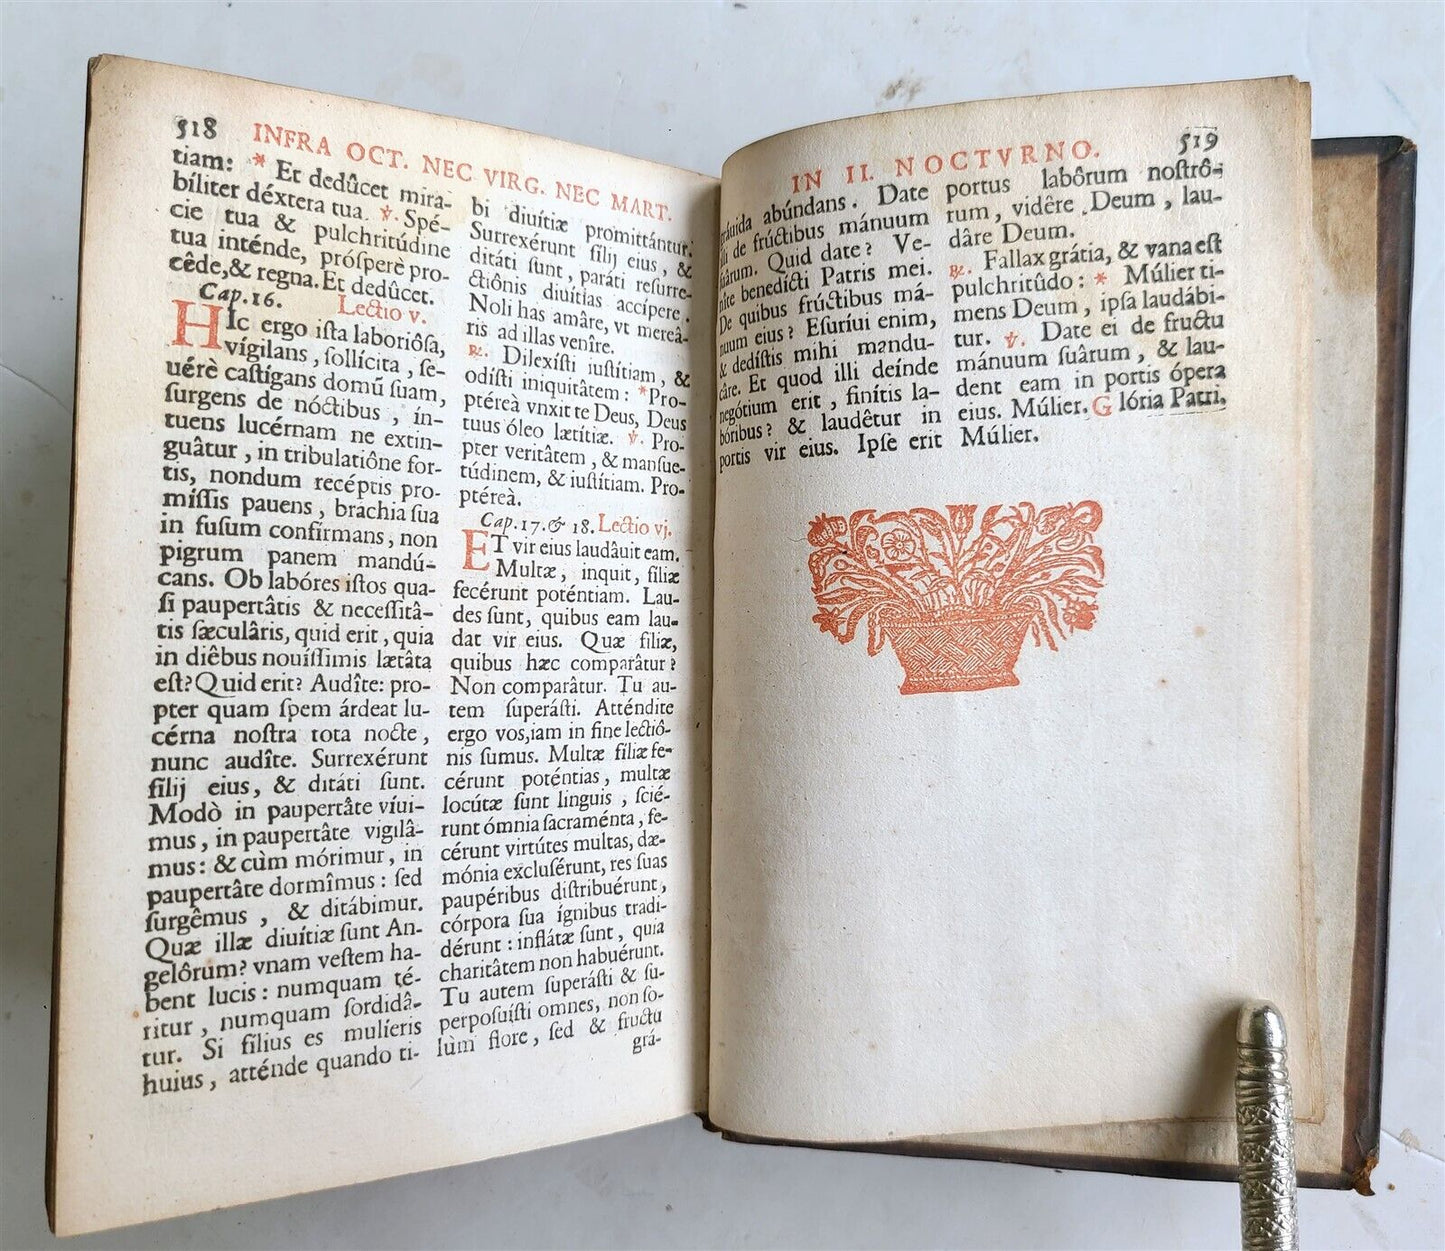 518 INFRA OCT. NEC VIRG. NEC MART.
tiam: * Et dedûcet mira-
bíliter déxtera tua. ℣. Spé-
cie tua & pulchritúdine
tua inténde, próſperè pro-
cêde,& regna. Et dedûcet.
Cap. 16. Lectio v.
HIc ergo iſta laboriôſa,
vígilans, ſollícita, ſe-
uérè caſtígans domũ ſuam,
ſurgens de nóctibus, in-
tuens lucérnam ne extin-
guâtur, in tribulatiône for-
tis, nondum recéptis pro-
miſſis pauens, brachia ſua
in fuſum confirmans, non
pigrum panem mandú-
cans. Ob labóres iſtos qua-
ſi paupertâtis & neceſſitâ-
tis ſæculâris, quid erit, quia
in diêbus nouiſſimis lætâta
eſt? Quid erit? Audîte: pro-
pter quam ſpem árdeat lu-
cérna noſtra tota nocte,
nunc audîte. Surrexérunt
filij eius, & ditáti ſunt.
Modò in paupertâte víui-
mus, in paupertâte vigilâ-
mus: & cùm mórimur, in
paupertâte dormîmus: ſed
ſurgêmus, & ditábimur.
Quæ illæ diuítiæ ſunt An-
gelôrum? vnam veſtem ha-
bent lucis: numquam té-
ritur, numquam ſordidâ-
tur. Si fílius es mulíeris
huius, atténde quando ti-
bi diuítiæ promittántur.
Surrexérunt filij eius, &
ditáti ſunt, paráti reſurre-
ctiônis diuítias accípere.
Noli has amâre, vt mereâ-
ris ad illas venîre.
℟. Dilexíſti iuſtítiam, &
odíſti iniquitâtem: * Pro-
ptéreà vnxit te Deus, Deus
tuus óleo lætítiæ. ℣. Pro-
pter veritâtem, & manſue-
túdinem, & iuſtítiam. Pro-
ptéreà.
Cap. 17. & 18. Lectio vj.
ET vir eius laudâuit eam.
Multæ, inquit, fíliæ
fecérunt poténtiam. Lau-
des ſunt, quibus eam lau-
dat vir eius. Quæ fíliæ,
quibus hæc comparâtur?
Non comparâtur. Tu au-
tem ſuperáſti. Atténdite
ergo vos,iam in fine lectiô-
nis ſumus. Multæ fíliæ fe-
cérunt poténtias, multæ
locútæ ſunt linguis, ſcié-
runt ómnia ſacraménta, fe-
cérunt virtútes multas, dæ-
mónia excluſérunt, res ſuas
paupéribus diſtribuérunt,
córpora ſua ígnibus tradi-
dérunt: inflátæ ſunt, quia
charitâtem non habuérunt.
Tu autem ſuperáſti & ſu-
perpoſuiſti omnes, non ſo-
lùm flore, ſed & fructu
grá-
IN II. NOCTVRNO. 519
gráuida abúndans. Date
illi de frúctibus mánuum
ſuârum. Quid date? Ve-
nîte benedícti Patris mei.
De quibus frúctibus má-
nuum eius? Eſuríui enim,
& dedíſtis mihi mandu-
câre. Et quod illi deínde
negótium erit, finítis la-
bóribus? & laudêtur in
portis vir eius. Ipſe erit
portus labôrum noſtrô-
rum, vidêre Deum, lau-
dâre Deum.
℟. Fallax grátia, & vana eſt
pulchritûdo: * Múlier ti-
mens Deum, ipſa laudábi-
tur. ℣. Date ei de fructu
mánuum ſuârum, & lau-
dent eam in portis ópera
eius. Múlier. Glória Patri.
Múlier.